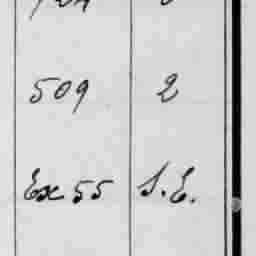 509 2
Ex 55 S.E.